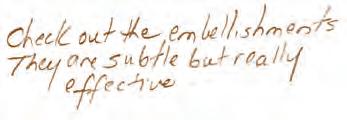 Check out the embellishments
They are subtle but really
effective